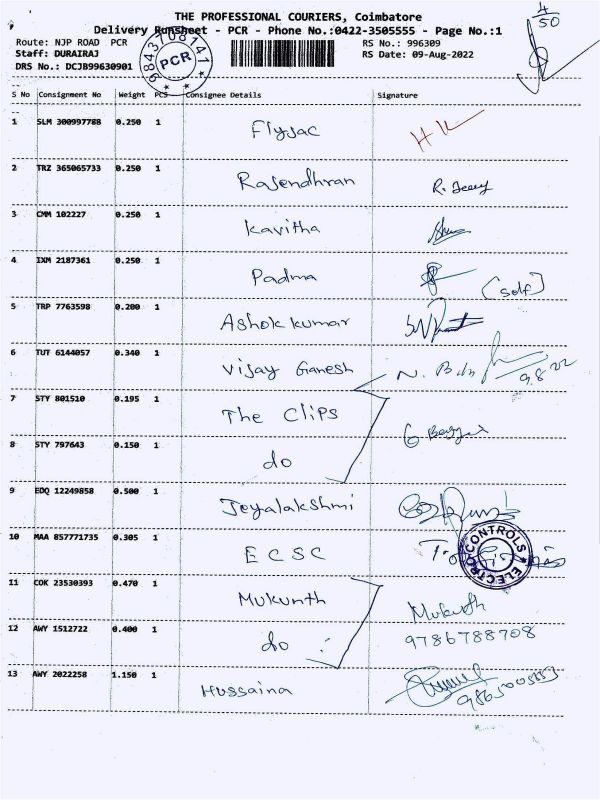 THE PROFESSIONAL COURIERS, Coimbatore
4/50
Delivery Runsheet - PCR - Phone No.:0422-3505555 - Page No.:1
Route: NJP ROAD PCR
RS No.: 996309
Staff: DURAIRAJ
RS Date: 09-Aug-2022
DRS No.: DCJB99630901
9843708141
PCR
S No Consignment No Weight PCS Consignee Details Signature
1 SLM 300997788 0.250 1 Flyjac HK
2 TRZ 365065733 0.250 1 Rajendhran
3 CMM 102227 0.250 1 Kavitha
4 IXM 2187361 0.250 1 Padma (self)
5 TRP 7763598 0.200 1 Ashok kumar
6 TUT 6144057 0.340 1 Vijay Ganesh 9.8.22
7 STY 801510 0.195 1 The Clips
8 STY 797643 0.150 1 do
9 EDQ 12249858 0.500 1 Jeyalakshmi
10 MAA 857771735 0.305 1 ECSC
ELECTRO CONTROLS
11 COK 23530393 0.470 1 Mukunth Mukunth
12 AWY 1512722 0.400 1 do 9786788708
13 AWY 2022258 1.150 1 Hussaina